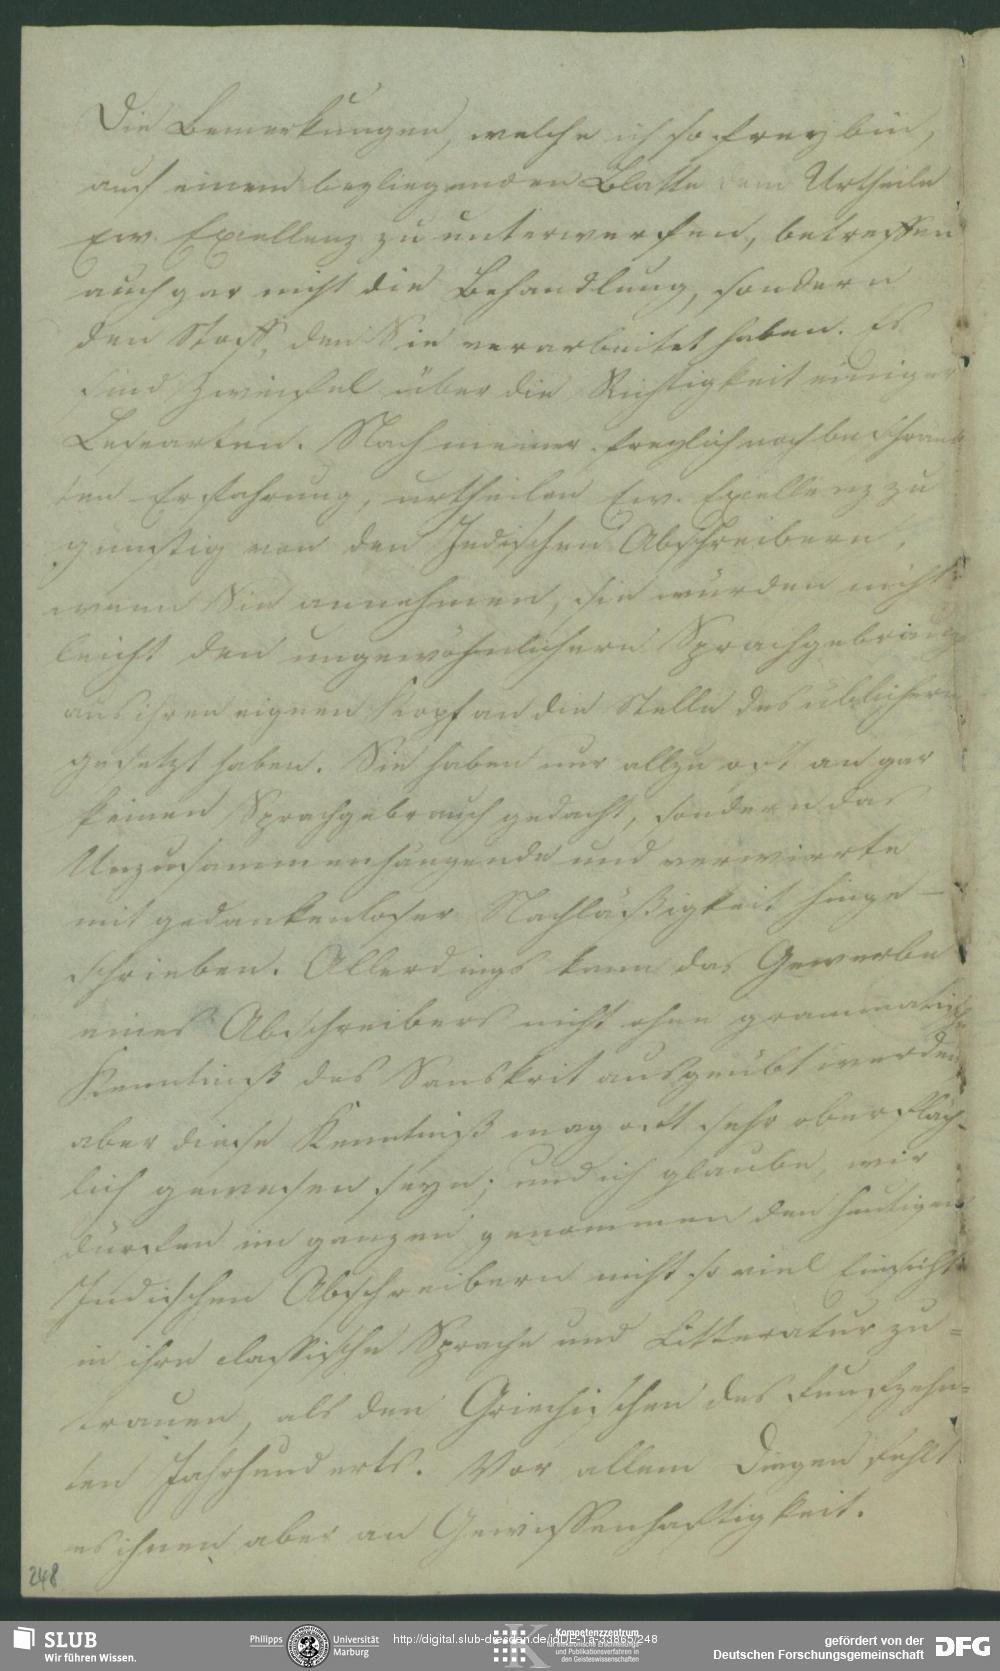 Die Bemerkungen, welche ich so frey bin,
auf einem beyliegenden Blatte dem Urtheile
Ew. Excellenz zu unterwerfen, betreffen
auch gar nicht die Behandlung, sondern
den Stoff, den Sie verarbeitet haben. Es
sind Zweifel über die Richtigkeit einiger
Lesearten. Nach meiner freylich noch beschränk
ten Erfahrung, urtheilen Ew. Excellenz zu
günstig von den Indischen Abschreibern,
wenn Sie annehmen, sie würden nicht
leicht den ungewöhnlichern Sprachgebrauch
aus ihrem eignen Kopf an die Stelle des üblichern
gesetzt haben. Sie haben nur allzu oft an gar
keinen Sprachgebrauch gedacht, sondern das
Unzusammenhängende und verwirrte
mit gedankenloser Nachläßigkeit hinge-
schrieben. Allerdings kann das Gewerbe
eines Abschreibers nicht ohne grammatische
Kenntniß des Sanskrit ausgeübt werden
aber diese Kenntniß mag oft sehr oberfläch-
lich gewesen seyn; und ich glaube, wir
dürfen im ganzen genommen den heutigen
Indischen Abschreibern nicht so viel Einsicht
in ihre classische Sprache und Litteratur zu=
trauen, als den Griechischen des funfzehn=
ten Jahrhunderts. Vor allen Dingen fehlt
es ihnen aber an Gewissenhaftigkeit.
248
SLUB
Wir führen Wissen.
Philipps Universität
Marburg
http://digital.slub-dresden.de/idDE-1a-33865/248
Kompetenzzentrum
für elektronische Erschließungs-
und Publikationsverfahren in
den Geisteswissenschaften
gefördert von der
Deutschen Forschungsgemeinschaft
DFG